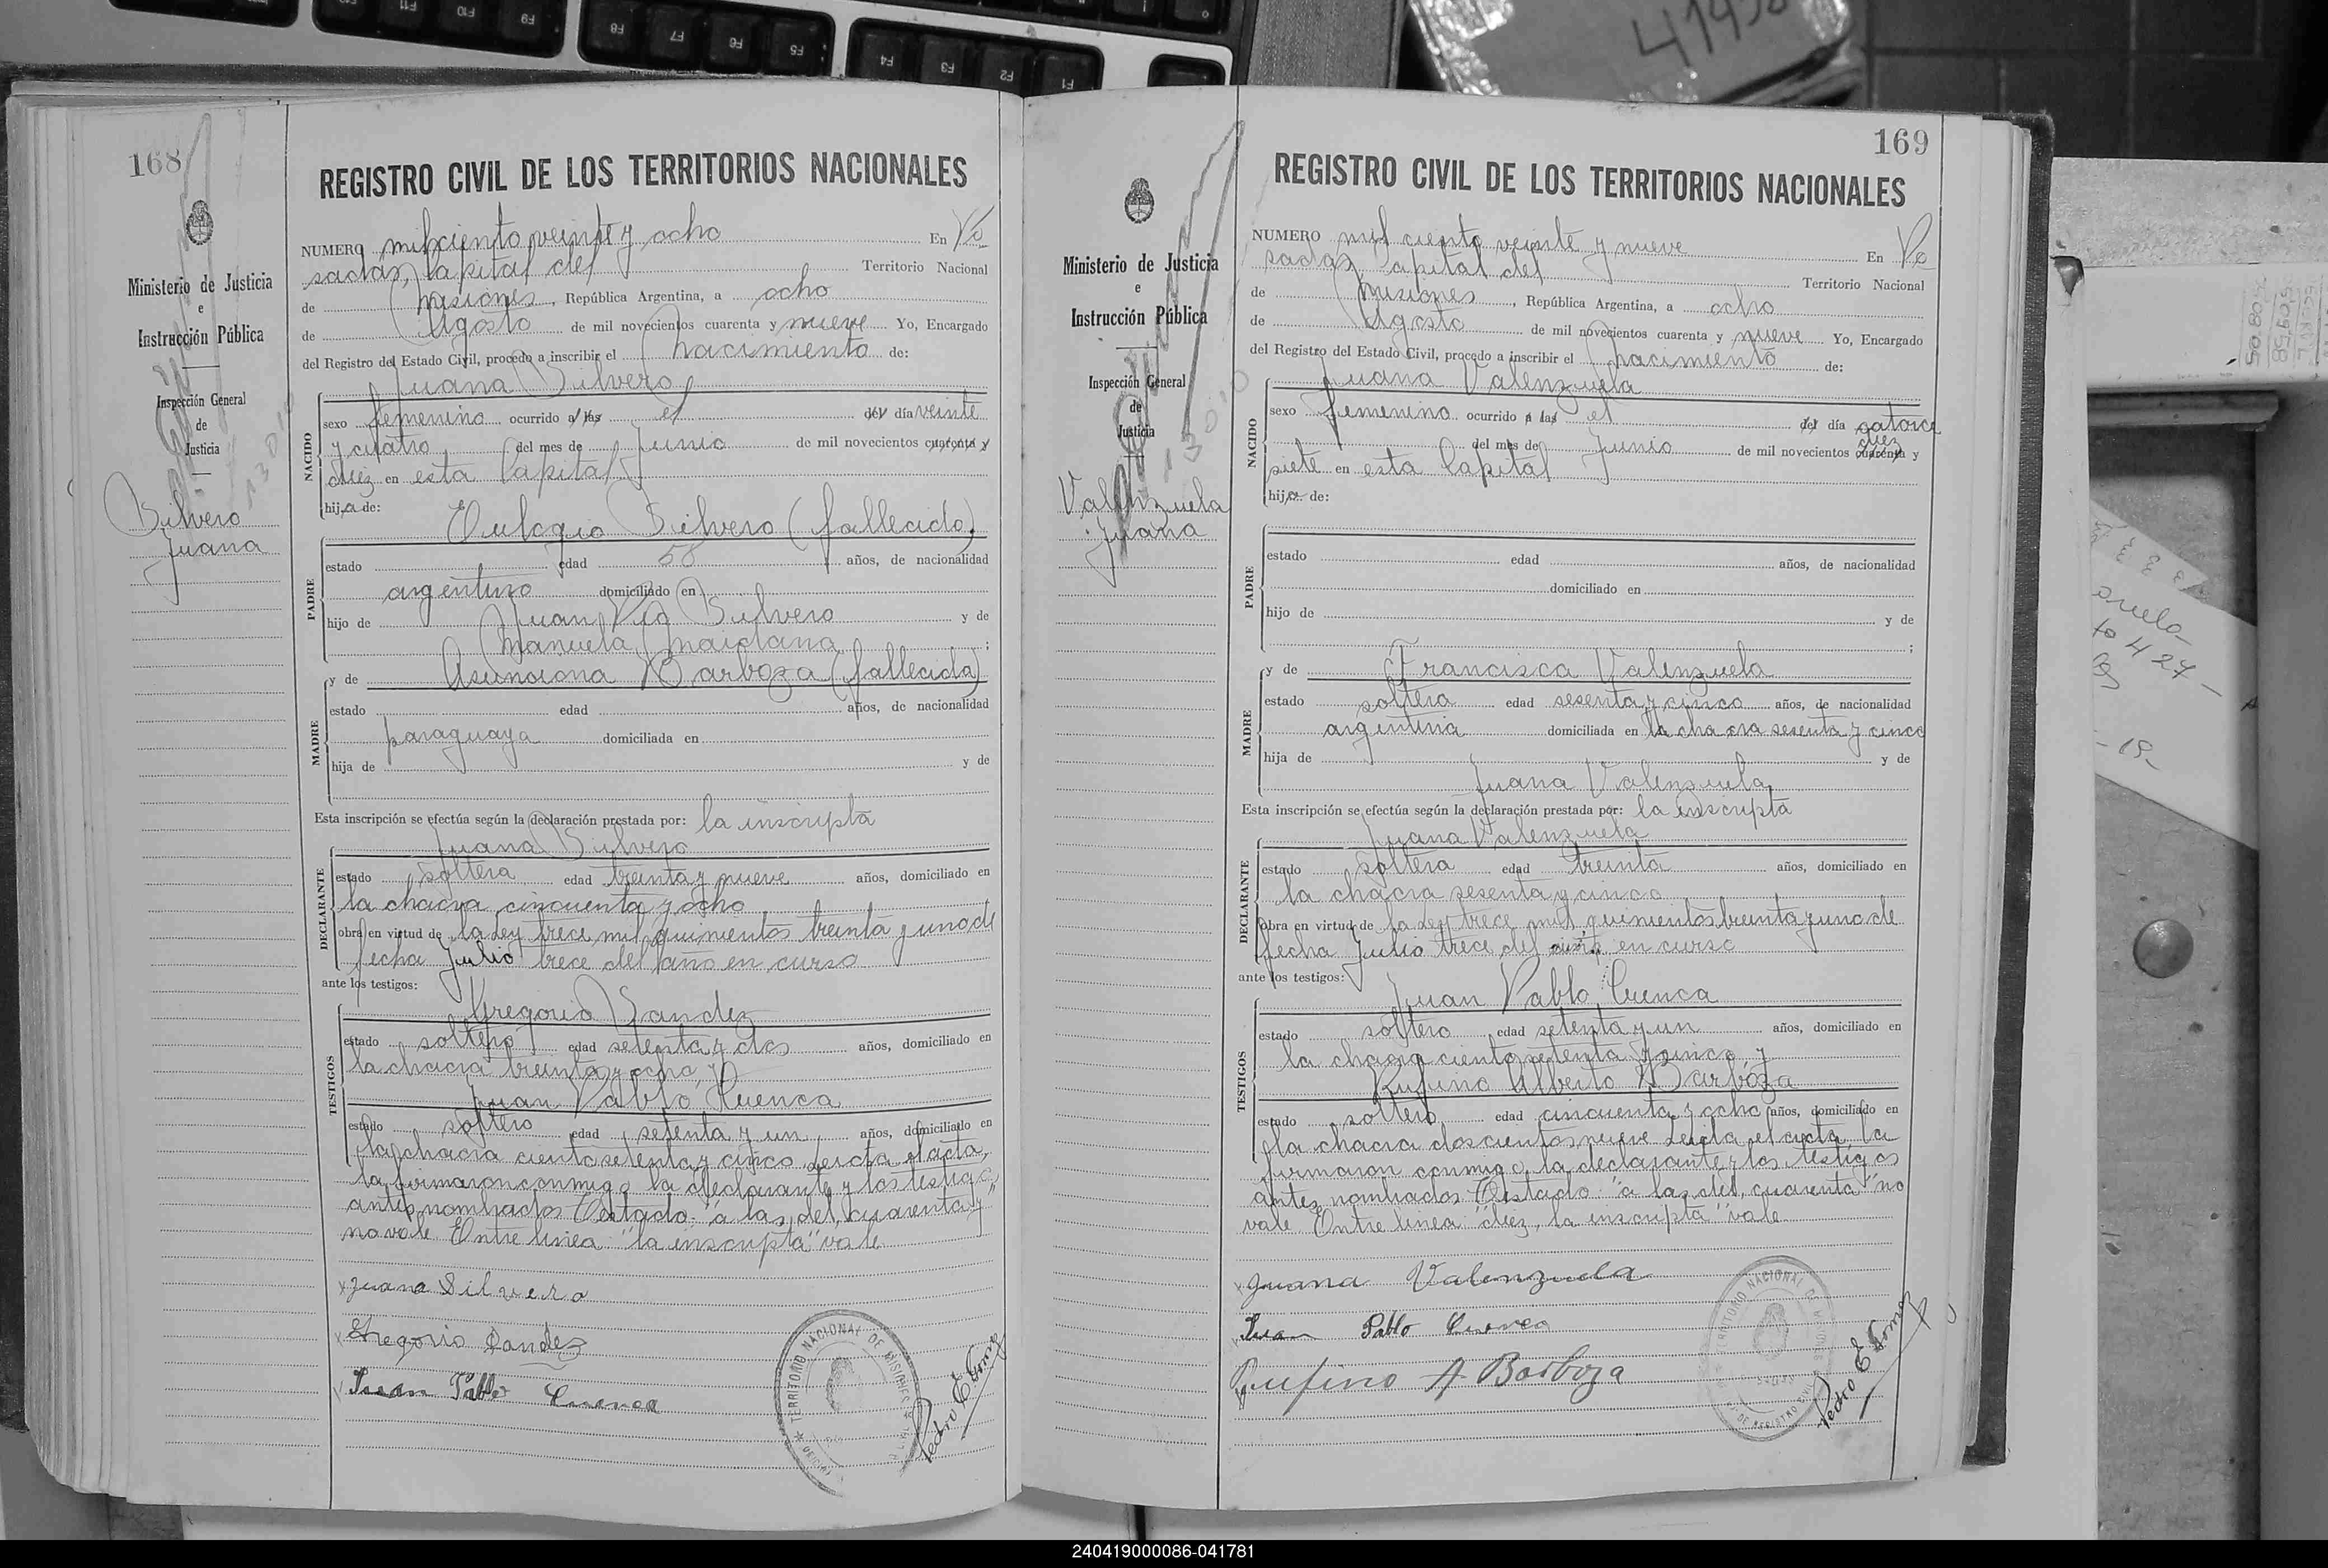 F12
F11
F10
F9
F8
F7
F6
F5
F4
F3
F2
F1
168
REGISTRO CIVIL DE LOS TERRITORIOS NACIONALES
Ministerio de Justicia
e
Instrucción Pública
Inspección General
de
Justicia
Silvero
Juana
NUMERO mil ciento veinte y ocho En Po
sadas, Capital del Territorio Nacional
de Misiones, República Argentina, a ocho
de Agosto de mil novecientos cuarenta y nueve Yo, Encargado
del Registro del Estado Civil, procedo a inscribir el nacimiento de:
NACIDO
Juana Silvero
sexo femenino ocurrido a las el del día veinte
y cuatro del mes de Junio de mil novecientos cuarenta y
diez en esta Capital
hija de:
PADRE
Eulogio Silvero (fallecido)
estado edad 58 años, de nacionalidad
argentino domiciliado en
hijo de Juan Pio Silvero y de
Manuela Maidana ;
MADRE
y de Asunciona Barboza (fallecida)
estado edad años, de nacionalidad
paraguaya domiciliada en
hija de y de
Esta inscripción se efectúa según la declaración prestada por: la inscripta
DECLARANTE
Juana Silvero
estado soltera edad treinta y nueve años, domiciliado en
la chacra cincuenta y ocho
obra en virtud de la Ley trece mil quinientos treinta y uno de
fecha Julio trece del año en curso
ante los testigos:
TESTIGOS
Gregorio Sandez
estado soltero edad setenta y dos años, domiciliado en
la chacra treinta y ocho, y
Juan Pablo Cuenca
estado soltero edad setenta y un años, domiciliado en
la chacra ciento setenta y cinco Leida el acta,
la firmaron conmigo la declarante y los testigos
antes nombrados Testado: "a las, del, cuarenta y"
no vale Entre linea: "la inscripta" vale
Juana Silvero
Gregorio Sandez
Juan Pablo Cuenca
TERRITORIO NACIONAL DE MISIONES
Pedro E Gomez
169
REGISTRO CIVIL DE LOS TERRITORIOS NACIONALES
Ministerio de Justicia
e
Instrucción Pública
Inspección General
de
Justicia
Valenzuela
Juana
NUMERO mil ciento veinte y nueve En Po
sadas Capital del Territorio Nacional
de Misiones, República Argentina, a ocho
de Agosto de mil novecientos cuarenta y nueve Yo, Encargado
del Registro del Estado Civil, procedo a inscribir el nacimiento de:
NACIDO
Juana Valenzuela
sexo femenino ocurrido a las el del día catorce
del mes de Junio de mil novecientos cuarenta y
diez
siete en esta Capital
hija de:
PADRE
estado edad años, de nacionalidad
domiciliado en
hijo de y de
;
MADRE
y de Francisca Valenzuela
estado soltera edad sesenta y cinco años, de nacionalidad
argentina domiciliada en la chacra sesenta y cinco
hija de y de
Juana Valenzuela
Esta inscripción se efectúa según la declaración prestada por: la inscripta
DECLARANTE
Juana Valenzuela
estado soltera edad treinta años, domiciliado en
la chacra sesenta y cinco
obra en virtud de la Ley trece mil quinientos treinta y uno de
fecha Julio trece del año en curso
ante los testigos:
TESTIGOS
Juan Pablo Cuenca
estado soltero edad setenta y un años, domiciliado en
la chacra ciento setenta y cinco, y
Rufino Alberto Barboza
estado soltero edad cincuenta y ocho años, domiciliado en
la chacra doscientos nueve Leida el acta, la
firmaron conmigo la declarante y los testigos
antes nombrados Testado: "a las, del, cuarenta" no
vale Entre linea "diez, la inscripta" vale
Juana Valenzuela
Juan Pablo Cuenca
Rufino A Barboza
TERRITORIO NACIONAL DE MISIONES
Pedro E Gomez
240419000086-041781